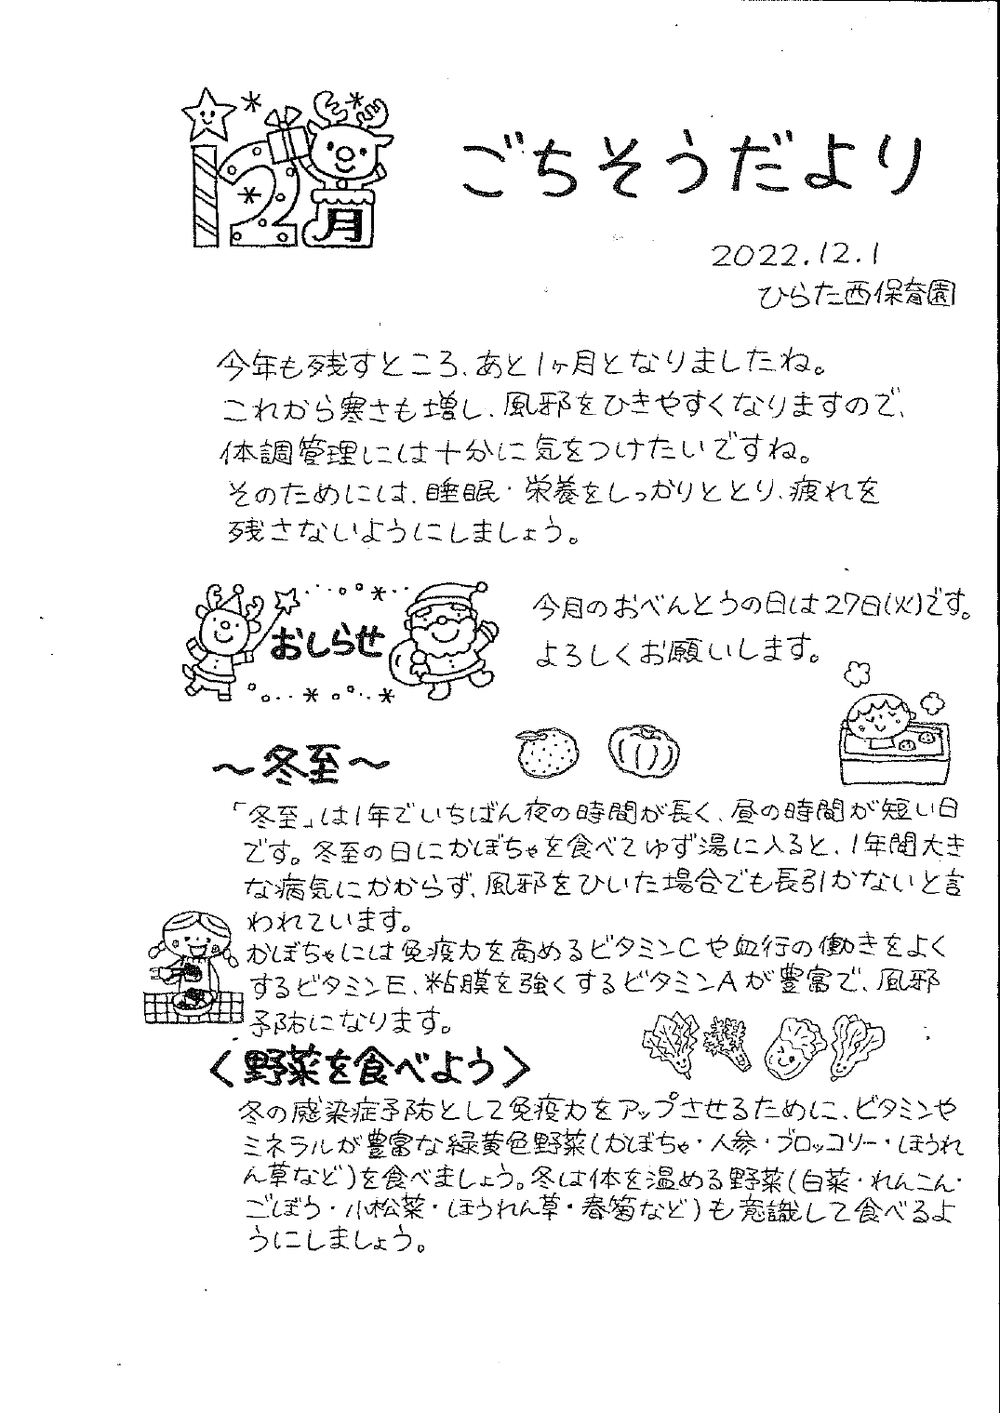 12月
ごちそうだより
2022.12.1
ひらた西保育園
今年も残すところ、あと1ヶ月となりましたね。
これから寒さも増し、風邪をひきやすくなりますので、
体調管理には十分に気をつけたいですね。
そのためには、睡眠・栄養をしっかりととり、疲れを
残さないようにしましょう。
おしらせ
今月のおべんとうの日は27日(火)です。
よろしくお願いします。
～冬至～
「冬至」は1年でいちばん夜の時間が長く、昼の時間が短い日
です。冬至の日にかぼちゃを食べてゆず湯に入ると、1年間大き
な病気にかからず、風邪をひいた場合でも長引かないと言
われています。
かぼちゃには免疫力を高めるビタミンCや血行の働きをよく
するビタミンE、粘膜を強くするビタミンAが豊富で、風邪
予防になります。
〈野菜を食べよう〉
冬の感染症予防として免疫力をアップさせるために、ビタミンや
ミネラルが豊富な緑黄色野菜(かぼちゃ・人参・ブロッコリー・ほうれ
ん草など)を食べましょう。冬は体を温める野菜(白菜・れんこん・
ごぼう・小松菜・ほうれん草・春菊など)も意識して食べるよ
うにしましょう。